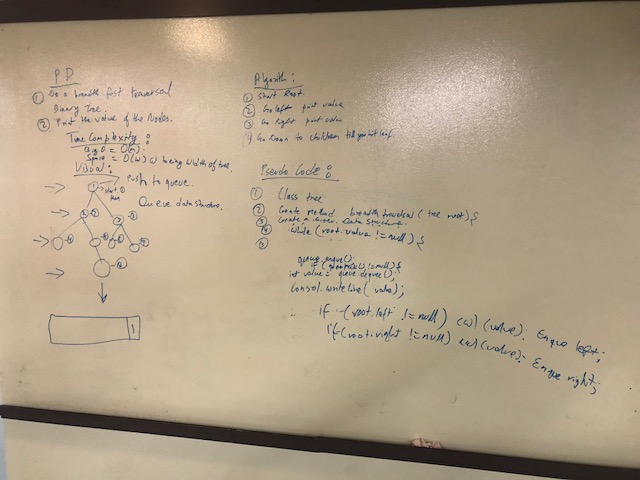 PD
① Do a breadth first traversal
Binary Tree.
② Print the value of the Nodes.
Time Complexity:
Big O = O(n).
Space = O(w) w being width of tree.
Visual:
Push to queue.
1
start
Queue data structure.
1
Algorith:
① Start Root.
② Go left print value
③ Go Right print value
4 Go Down to children till you hit leaf.
Pseudo Code:
① Class tree
② Create Method breadth traversal (tree root) {
③ Create a Data Structure.
④ while (root.value != null) {
⑤
queue.enque();
if ( != null) {
int value = queue.dequeue();
Consol.writeline(value);
if (root.left != null) cw (value). Enque left;
if (root.right != null) cw (value). Enque right;